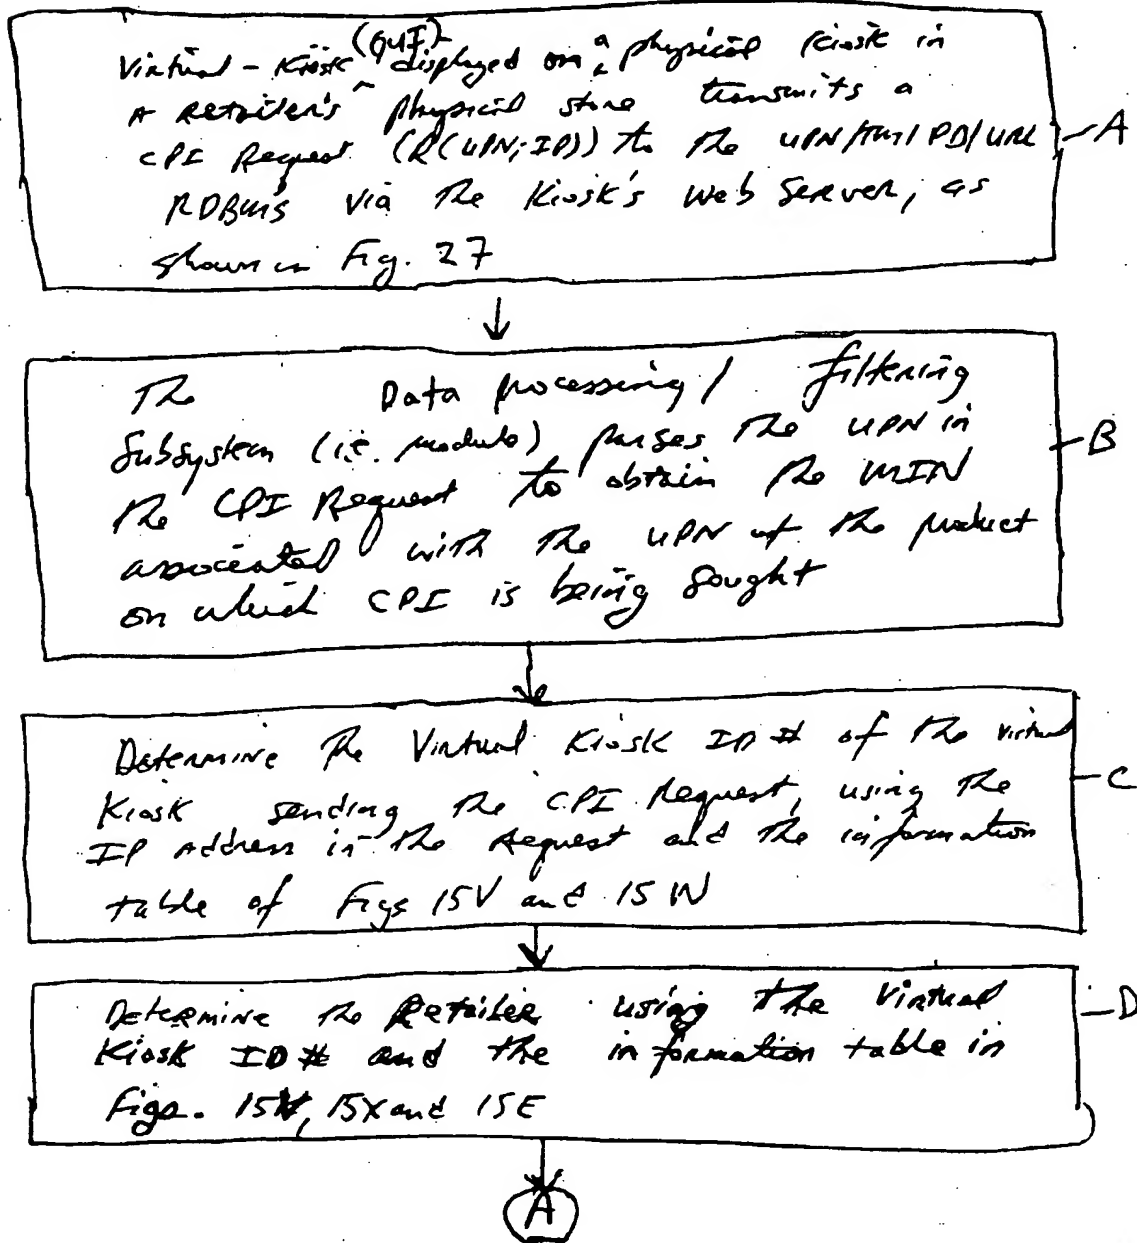 (GUI)
Virtual-Kiosk ^ displayed on ^a physical Kiosk in
A Retailer's physical store transmits a
CPI Request (R(UPN; IP)) to the UPN/TM/PD/URL
RDBMS via the Kiosk's Web Server, as
shown in Fig. 27
A
The Data processing / filtering
Subsystem (i.e. module) parses the UPN in
the CPI Request to obtain the MIN
associated with the UPN of the product
on which CPI is being sought
B
Determine the Virtual Kiosk ID # of the virtual
Kiosk sending the CPI Request, using the
IP Address in the Request and the information
table of Figs 15V and 15W
C
Determine the Retailer using the Virtual
Kiosk ID # and the information table in
Figs. , 15X and 15E
D
A